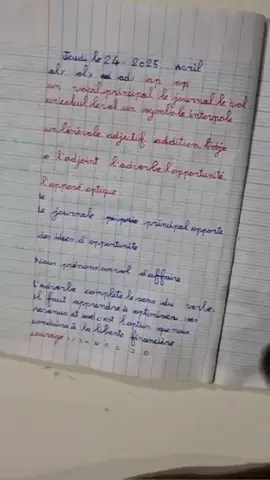 Jeudi le 24 . 2025 avril
al, ol, ad ad . ap op
un vocal principal le journal le vol
un calcul le val un symbole interpole
un bénévole adjectif addition
l'adjoint l'adverbe l'opportunité,
l'opposé optique
le
le journale principal opporte
des idées d'opportunité
Nous prénons un vol d'affaire
L'adverbe complète le sens du verbe.
Il faut apprendre à optimiser ses
revenus et c'est l'option que nous
conduire à la liberté financière
courage